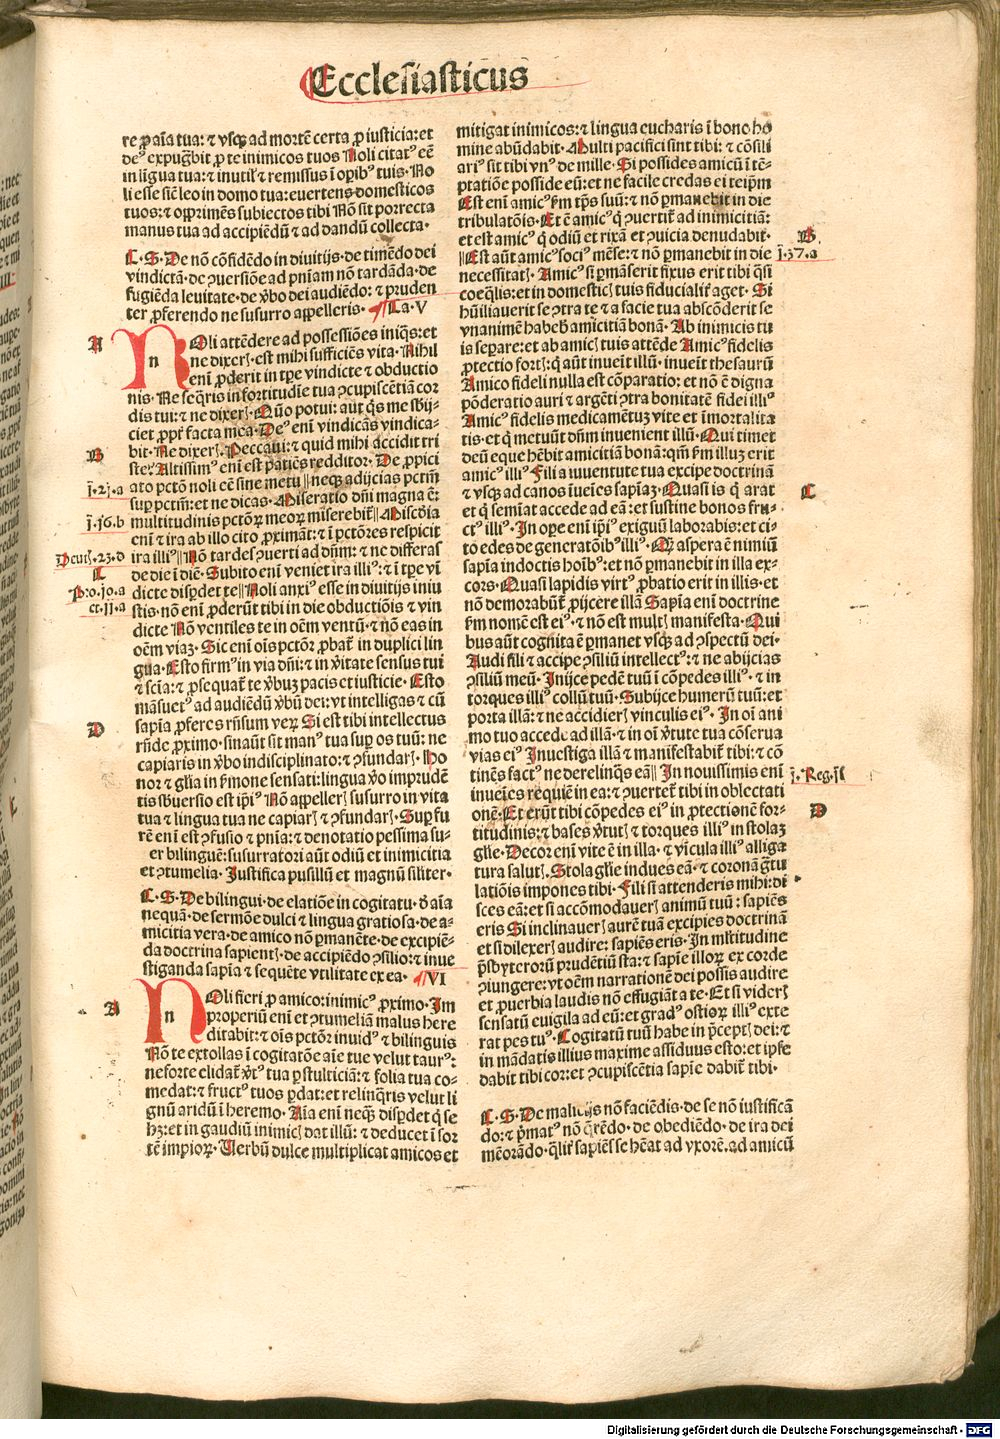 Ecclesiasticus
re ꝓ aĩa tua: ⁊ vsqꝫ ad mortẽ certa ꝓ iusticia: et
deꝰ expugᷠbit ꝓ te inimicos tuos Noli citatꝰ eẽ
in lĩgua tua: ⁊ inutilꝭ ⁊ remissus ĩ oꝑibꝰ tuis· No
li esse siĉ leo in domo tua: euertens domesticos
tuos: ⁊ opprimẽs subiectos tibi Nõ sit porrecta
manus tua ad accipiẽdũ ⁊ ad dandũ collecta·
C· S· De nõ cõfidẽdo in diuitijs· de timẽdo dei
vindictã· de ꝯuersiõe ad pñiam nõ tardãda· de
fugiẽda leuitate· de ṽbo dei audiẽdo: ⁊ pruden
ter ꝓferendo ne susurro appelleris· ¶ Ca· V
A
NOli attẽdere ad possessiões iniq̃s: et
n
ne dixerꝭ· est mihi sufficiẽs vita· Nihil
enĩ ꝓderit in tꝑe vindicte ⁊ obductio
nis· Ne seq̃ris in fortitudĩe tua ꝯcupiscẽtiã cor
dis tui: ⁊ ne dixerꝭ· Quõ potui: aut q̃s me sbij-
ciet ꝓpt̃ facta mea· Deꝰ enĩ vindicãs vindica-
B
bit· Ne dixerꝭ· Peccaui: ⁊ quid mihi accidit tri
ste? Altissimꝰ enĩ est patiẽs redditor· De ꝓpici
j· 21· a
ato pctõ noli eẽ sine metu || neqꝫ adijcias pctm̃
suꝑ pctm̃: et ne dicas· Miseratio dñi magna ẽ:
j· 16· b
multitudinis pctõꝝ meoꝝ miserebit̃ || Miscd̃ia
enĩ ⁊ ira ab illo cito ꝓximãt: ⁊ ĩ pctõres respicit
Deut· 23· d
ira illiꝰ || Nõ tardes ꝯuerti ad dñm: ⁊ ne differas
C
de die ĩ diẽ· Subito enĩ veniet ira illiꝰ: ⁊ ĩ tꝑe vĩ
Pro· 10· a
dicte disꝑdet te || Noli anxiꝰ esse in diuitijs iniu
et· 11· a
stis· nõ enĩ ꝓderũt tibi in die obductiõis ⁊ vin
dicte Nõ ventiles te in oẽm ventũ· ⁊ nõ eas in
oẽm viaꝫ· Sic enĩ oĩs pctõr ꝓbat̃ in duplici lin
gua· Esto firmꝰ in via dñi: ⁊ in ṽitate sensus tui
⁊ scĩa: ⁊ ꝓsequat̃ te ṽbuꝫ pacis et iusticie· Esto
mãsuetꝰ ad audiẽdũ ṽbũ dei: vt intelligas ⁊ cũ
D
sapĩa ꝓferes rñsum veꝝ Si est tibi intellectus
rñde ꝓximo· sinaũt sit manꝰ tua suꝑ os tuũ: ne
capiaris in ṽbo indisciplinato: ⁊ ꝯfundarꝭ· Ho
nor ⁊ glĩa in ẜmone sensati: lingua ṽo imprudẽ
tis sbuersio est ipĩꝰ Nõ appellerꝭ susurro in vita
tua ⁊ lingua tua ne capiarꝭ ⁊ ꝯfundarꝭ· Suꝑ fu
rẽ enĩ est ꝯfusio ⁊ pñia: ⁊ denotatio pessima su-
er bilinguẽ: susurratori aũt odiũ et inimicitia
et ꝯtumelia· Justifica pusillũ et magnũ siliter·
C· S· De bilingui· de elatiõe in cogitatu· d̃ aĩa
nequã· de sermõe dulci ⁊ lingua gratiosa· de a-
micitia vera· de amico nõ ꝑmanẽte· de excipiẽ-
da doctrina sapientꝭ· de accipiẽdo ꝯsilio: ⁊ inue
stiganda sapĩa ⁊ seq̃uẽte vtilitate ex ea· ¶ VI
A
NOli fieri ꝓ amico: inimicꝰ ꝓximo· Im
n
properiũ enĩ et ꝯtumeliã malus here
ditabit: ⁊ oĩs pctõr inuidꝰ ⁊ bilinguis
Nõ te extollas ĩ cogitatõe aĩe tue velut taurꝰ:
ne forte elidat̃ ṽtꝰ tua ꝑ stulticiã: ⁊ folia tua co-
medat: ⁊ fructꝰ tuos ꝑdat: et relinq̃ris velut li
gnũ aridũ ĩ heremo· Aĩa enĩ neqꝫ disꝑdet q̃ se
hꝫ: et in gaudiũ inimicꝭ dat illũ: ⁊ deducet ĩ sor
tẽ impioꝝ· Uerbũ dulce multiplicat amicos et
mitigat inimicos: ⁊ lingua eucharis ĩ bono ho
mine abũdabit· Multi pacifici sint tibi: ⁊ cõsili
ariꝰ sit tibi vnꝰ de mille· Si possides amicũ ĩ tẽ-
ptatiõe posside eũ: et ne facile credas ei teip̃m
Est enĩ amicꝰ ẜm tp̃s suũ: ⁊ nõ ꝑmanebit in die
tribulatõis· Et ẽ amicꝰ q̃ ꝯuertit̃ ad inimicitiã:
B
et est amicꝰ q̃ odiũ et rixã et ꝯuicia denudabit·
j· 37· a
|| Est aũt amicꝰ sociꝰ mẽse: ⁊ nõ ꝑmanebit in die
necessitatꝭ· Amicꝰ si ꝑmãserit fixus erit tibi q̃si
coeq̃lis: et in domesticꝭ tuis fiducialit̃ aget· Si
hũiliauerit se ꝯtra te ⁊ a facie tua abscõderit se
vnanimẽ habebꝭ amicitiã bonã· Ab inimicis tu
is separe: et ab amicꝭ tuis attẽde Amicꝰ fidelis
ꝓtectio fortꝭ: q̃ aũt inuẽit illũ· inuẽit thesaurũ
Amico fideli nulla est cõparatio: et nõ ẽ digna
põderatio auri ⁊ argẽti ꝯtra bonitatẽ fidei illiꝰ
Amicꝰ fidelis medicamẽtuꝫ vite et ĩmortalita
tis· et q̃ metuũt dñm inuenient illũ· Qui timet
deũ eque hẽbit amicitiã bonã: qm̃ ẜm illuꝫ erit
amicꝰ illiꝰ Fili a iuuentute tua excipe doctrinã
C
⁊ vsqꝫ ad canos ĩuẽies sapĩaꝫ· Quasi is q̃ arat
et q̃ semĩat accede ad eã: et sustine bonos fru-
ctꝰ illiꝰ· In oꝑe enĩ ip̃iꝰ exiguũ laborabis: et ci-
to edes de generatõibꝰ illiꝰ· Q̃ꝫ aspera ẽ nimiũ
sapĩa indoctis hoĩbꝰ: et nõ ꝑmanebit in illa ex-
cors· Quasi lapidis virtꝰ ꝓbatio erit in illis· et
nõ demorabũt̃ ꝓijcere illã Sapĩa enĩ doctrine
ẜm nomẽ est eiꝰ· ⁊ nõ est multꝭ manifesta· Qui
bus aũt cognita ẽ ꝑmanet vsqꝫ ad ꝯspectũ dei·
Audi fili ⁊ accipe ꝯsiliũ intellectꝰ: ⁊ ne abijcias
ꝯsiliũ meũ· Inijce pedẽ tuũ ĩ cõpedes illiꝰ· ⁊ in
torques illiꝰ collũ tuũ· Subijce humerũ tuũ: et
porta illã: ⁊ ne accidierꝭ vinculis eiꝰ· In oĩ ani
mo tuo accede ad illã· ⁊ in oĩ ṽtute tua cõserua
vias eiꝰ Inuestiga illã ⁊ manifestabit̃ tibi: ⁊ cõ
j· Reg· jl
tinẽs factꝰ ne derelinq̃s eã || In nouissimis enĩ
inueĩes requiẽ in ea: ⁊ ꝯuertet̃ tibi in oblectati
D
onẽ· Et erũt tibi cõpedes eiꝰ in ꝓtectionẽ for-
titudinis: ⁊ bases ṽtutꝭ ⁊ torques illiꝰ in stolaꝫ
glĩe· Decor enĩ vite ẽ in illa· ⁊ vĩcula illiꝰ alliga
tura salutꝭ· Stola glĩe indues eã· ⁊ coronã g̃tu
latiõis impones tibi· Fili si attenderis mihi: di
sces eã: et si accõmodauerꝭ animũ tuũ: sapiẽs
eris Si inclinauerꝭ aurẽ tuã excipies doctrinã
et si dilexerꝭ audire: sapiẽs eris· In mĩtitudine
p̃sbyterorũ prudẽtiũ sta: ⁊ sapĩe illoꝝ ex corde
ꝯiungere: vt oẽm narrationẽ dei possis audire
et ꝓuerbia laudis nõ effugiãt a te· Et si viderꝭ
sensatũ euigila ad eũ: et gradꝰ ostioꝝ illiꝰ exte
rat pes tuꝰ· Cogitatũ tuũ habe in p̃ceptꝭ dei: ⁊
in mãdatis illius maxime assiduus esto: et ip̃e
dabit tibi cor: et ꝯcupiscẽtia sapĩe dabit̃ tibi·
C· S· De malicijs nõ faciẽdis· de se nõ iustificã
do: ⁊ p̃matꝰ nõ q̃rẽdo· de obediẽdo· de ira dei
mẽorãdo· q̃lit̃ sapiẽs se hẽat ad vxorẽ· ad amicũ
Digitalisierung gefördert durch die Deutsche Forschungsgemeinschaft - DFG